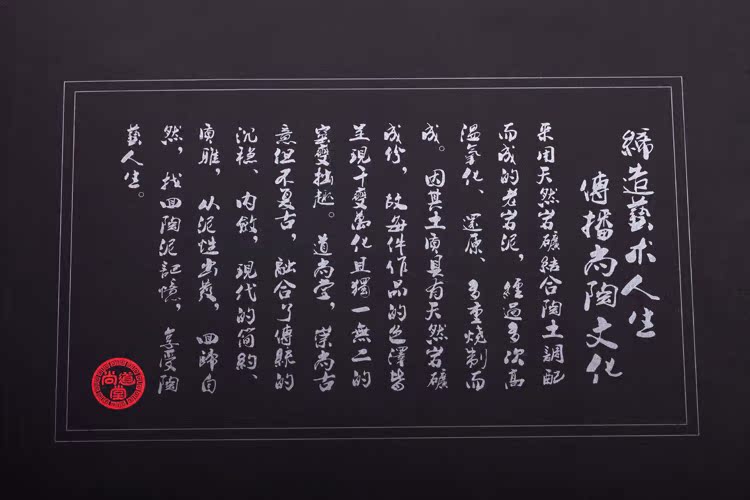 締造藝术人生
傳播尚陶文化
采用天然岩礦結合陶土調配
而成的老岩泥，經過多次高
温氧化、還原、多重燒制而
成。因其土质具有天然岩礦
成份，故每件作品的色澤皆
呈現千變萬化且獨一無二的
窑變拙趣。道尚堂，崇尚古
意但不复古，融合了傳統的
沉穩、内斂，現代的简約、
质雅，从泥性出發，回歸自
然，找回陶泥記憶，享受陶
藝人生。
道尚堂